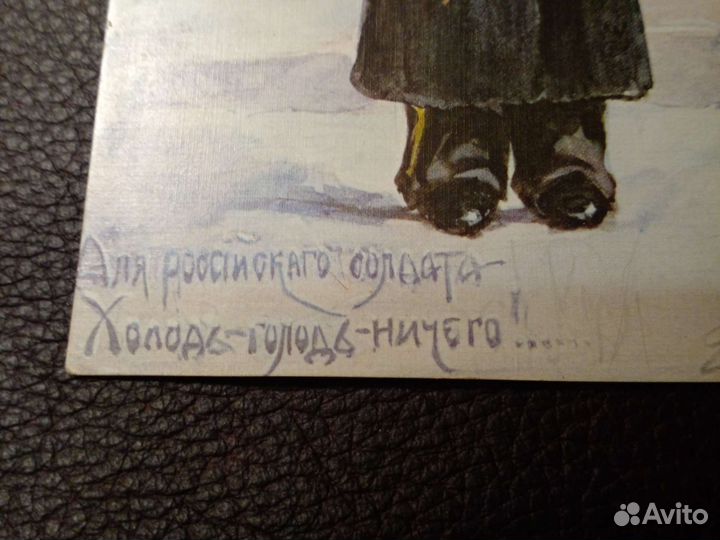 Для россiйскаго солдата-
Холодъ-голодъ-ничего!......
Avito